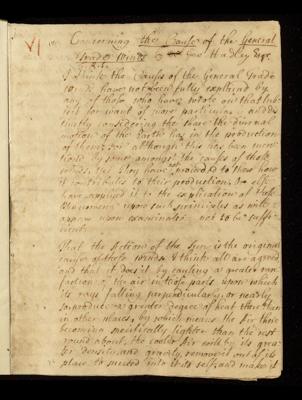 VI
Concerning the Cause of the General
Trade Winds by Geo: Hadley Esqr.
I think the Causes of the General Trade
Winds have not been fully explained by
any of those who have wrote on that Subject
for want of more particularly
considering the share the diurnal
motion of the Earth has in the production
of them: for although this has been
by some amongst the causes of those
Winds, yet they have not proceeded to shew how
it contributes to their production, or else
have applied it to the explication of these
Phaenomena upon such principles as will
appear upon examination not to be
That the Action of the Sun is the original
cause of these Winds I think all are agreed
and that it does it by causing a greater
of the air in those parts upon which
its rays falling perpendicularly, or nearly
so produce a greater degree of heat there than
in other places, by which means the Air there
becoming specifically lighter than the rest
round about, the cooler Air will by its
density and gravity, remove it out of its
place to succeed into it its self, and make it